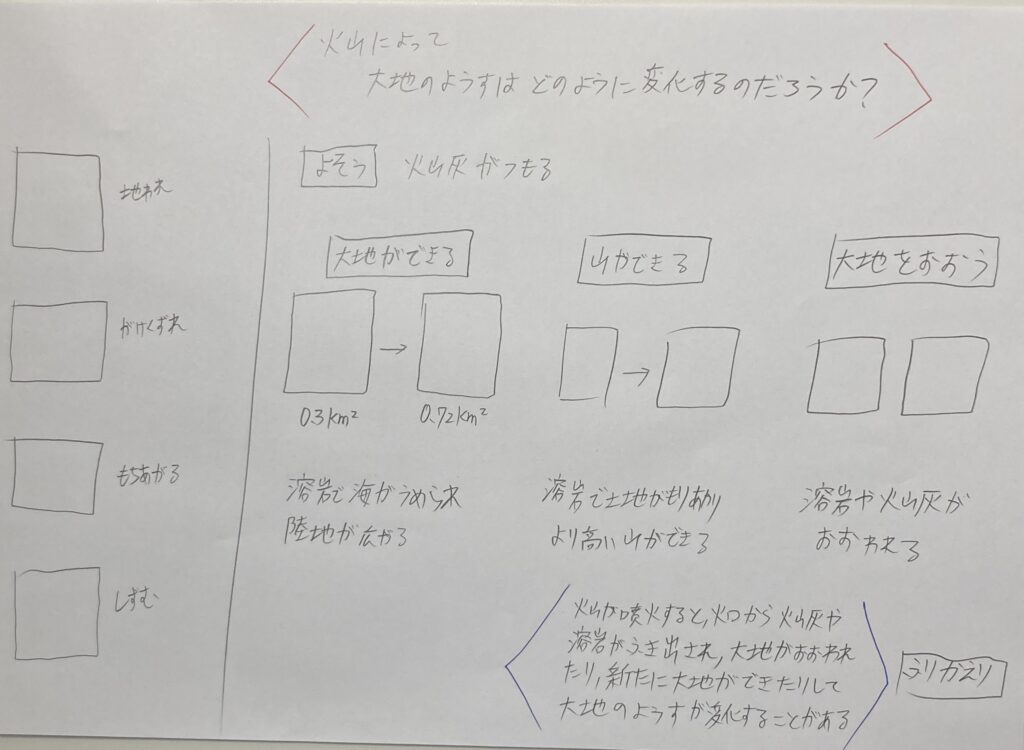 火山によって
大地のようすは どのように変化するのだろうか?
地われ
がけくずれ
もちあがる
しずむ
よそう 火山灰がつもる
大地ができる
0.3km² → 0.72km²
溶岩で海がうめられ
陸地が広がる
山ができる
→
溶岩で土地がもりあがり
より高い山ができる
大地をおおう
溶岩や火山灰が
おおわれる
火山が噴火すると,火口から火山灰や
溶岩がふき出され,大地がおおわれ
たり,新たに大地ができたりして
大地のようすが変化することがある
ふりかえり